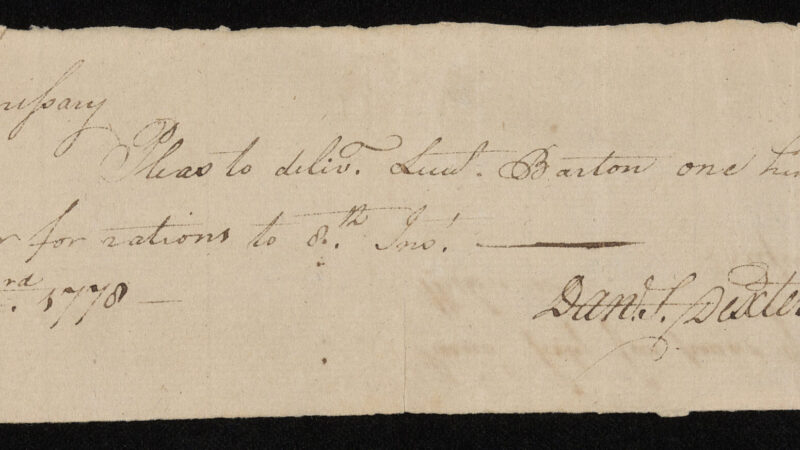 missary
Pleas to deliv.r Lieut. Barton one hun
r for rations to 8.th Inst.
rd. 1778 —
Dan.l S. Dexter